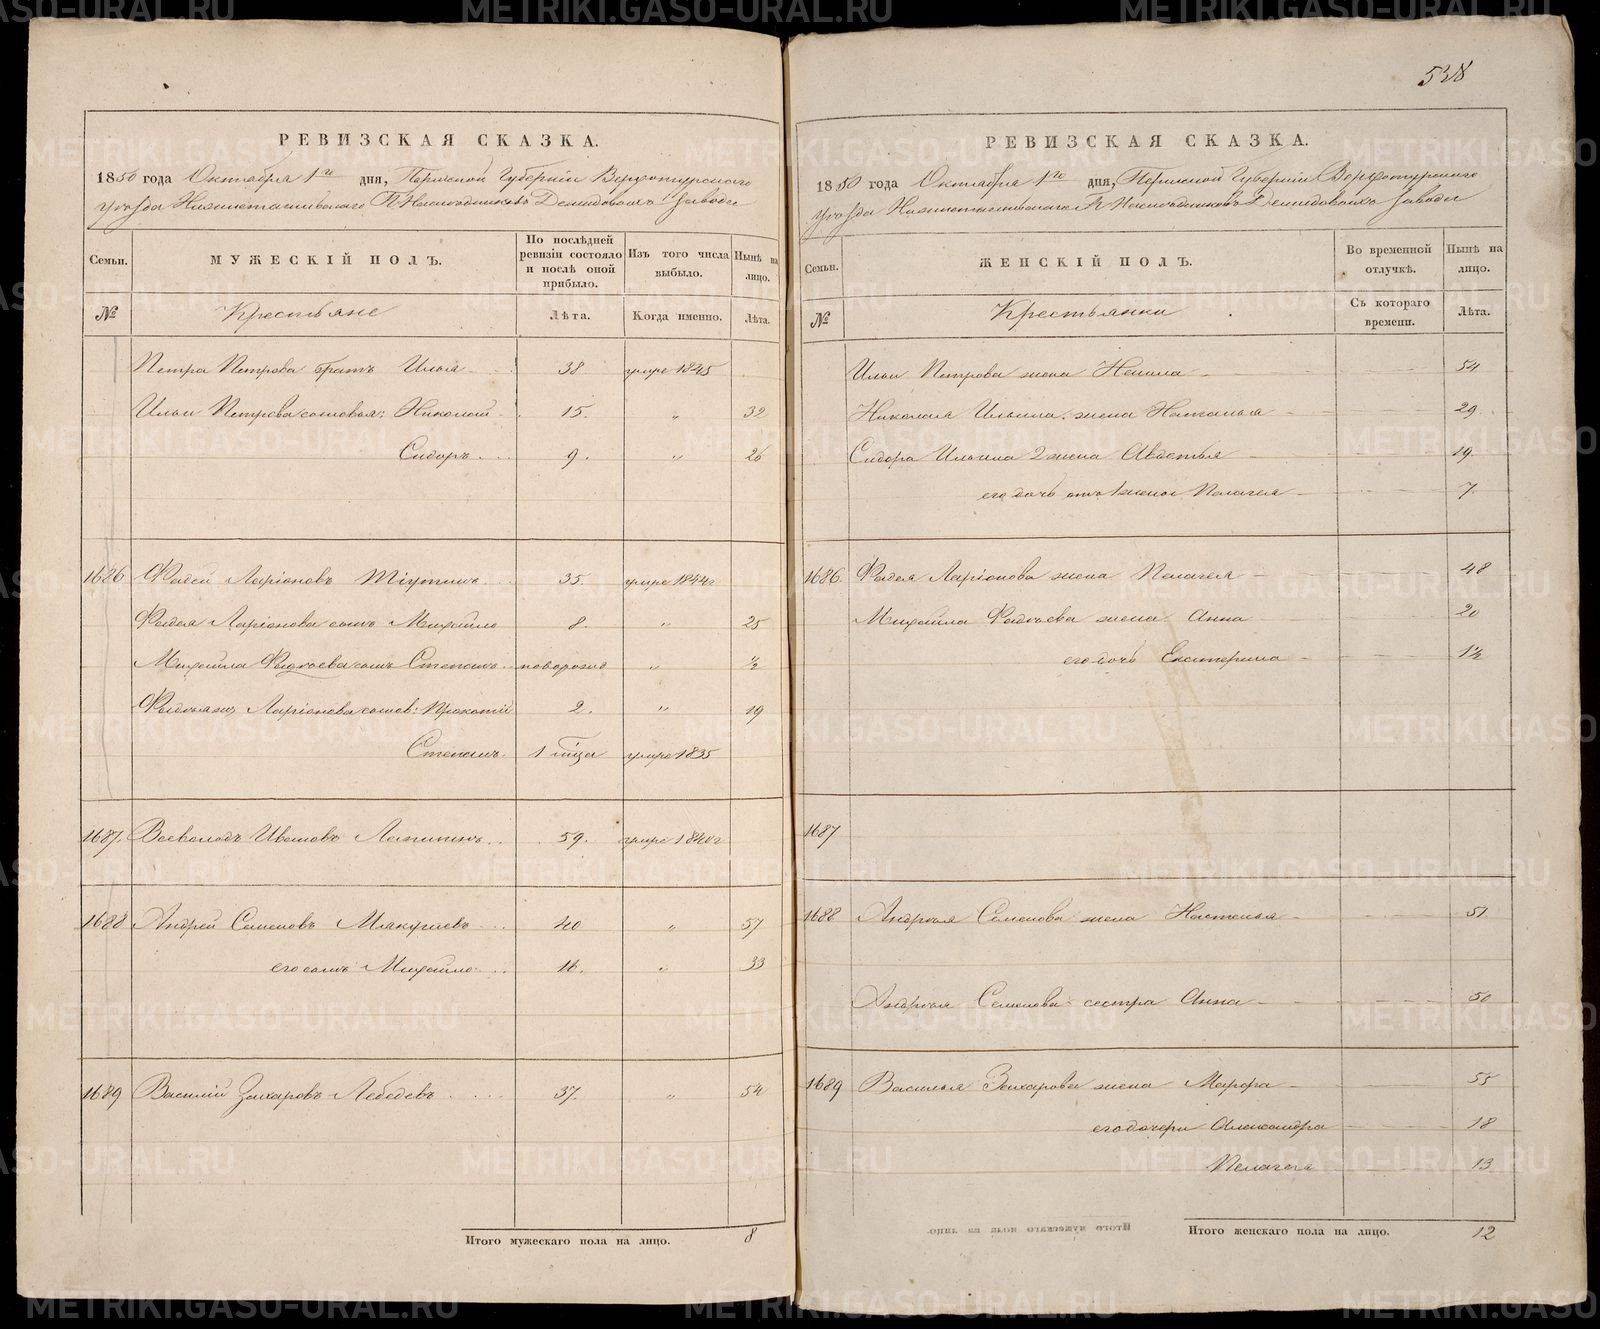 538
РЕВИЗСКАЯ СКАЗКА.
1850 года Октября 1го дня, Пермской Губерніи Верхотурскаго
уѣзда Нижнетагильскаго Г. Наслѣдниковъ Демидовыхъ завода
Семьи.
МУЖЕСКІЙ ПОЛЪ.
По послѣдней ревизіи состояло и послѣ оной прибыло.
Изъ того числа выбыло.
Нынѣ на лицо.
№
Крестьяне
Лѣта.
Когда именно.
Лѣта.
Петра Петрова братъ Илья 38 умре 1845
Ильи Петрова сыновья: Николай 15. " 32
Сидоръ 9. " 26
1686 Фадей Ларіоновъ 35. умре 1844г
Фадея Ларіонова сынъ Михайло 8. " 25
Михайла Фадѣева сынъ Степанъ новорожд " ½
Ларіонова сынов: Прокопій 2. " 19
Степанъ 1 мѣсца умре 1835
1687. Всеволодъ Ивановъ Лапитинъ 59. умре 1840г
1688 Андрей Семеновъ 40 " 57
его сынъ Михайло 16. " 33
1689 Василій Захаровъ Лебедевъ 37. " 54
Итого мужескаго пола на лицо. 8
РЕВИЗСКАЯ СКАЗКА.
1850 года Октября 1го дня, Пермской Губерніи Верхотурскаго
уѣзда Нижнетагильскаго Г. Наслѣдниковъ Демидовыхъ завода
Семьи.
ЖЕНСКІЙ ПОЛЪ.
Во временной отлучкѣ.
Нынѣ на лицо.
№
Крестьянки
Съ котораго времени.
Лѣта.
Ильи Петрова жена Ненила 54
Николая Ильина жена Наталья 29
Сидора Ильина 2 жена Авдотья 19
его дочь отъ 1 жены Пелагея 7
1686. Фадея Ларіонова жена Пелагея 48
Михайла Фадѣева жена Анна 20
его дочь Екатерина 1½
1687
1688 Андрея Семенова жена Настасья 51
Андрея Семенова сестра Анна 50
1689 Василья Захарова жена Марфа 55
его дочери Александра 18
Пелагея 13
Итого женскаго пола на лицо. 12
METRIKI.GASO-URAL.RU